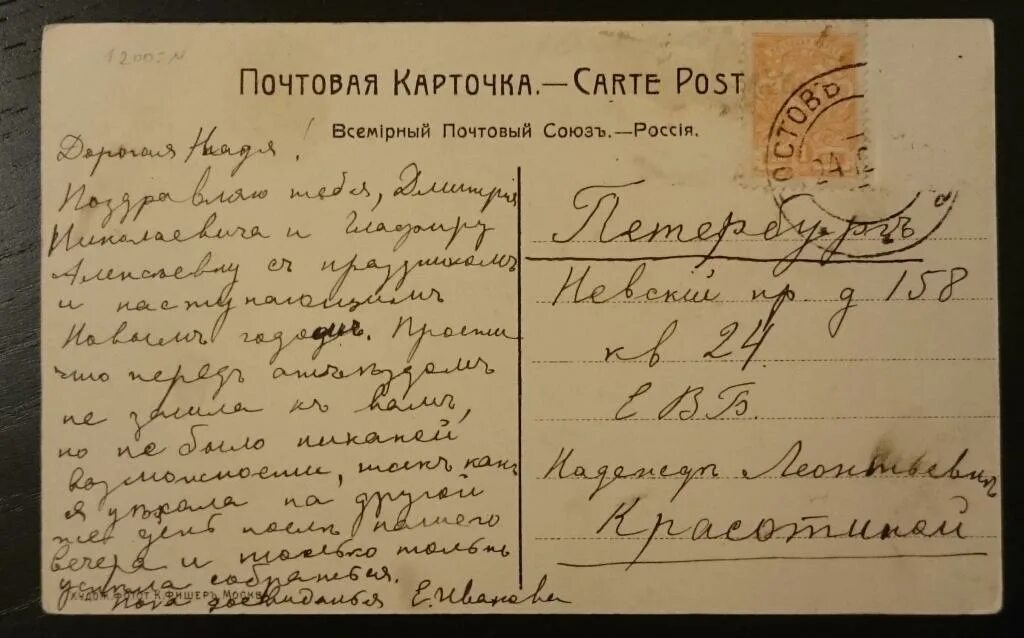 ПОЧТОВАЯ КАРТОЧКА.—CARTE POST
Всемірный Почтовый Союзъ.—Россія.
Дорогая Надя!
Поздравляю тебя, Дмитрія
Николаевича и
Алексѣевну съ праздникомъ
и наступающимъ
Новымъ годомъ. Прости
что передъ отъѣздомъ
не зашла къ вамъ,
но не было никакой
возможности, такъ какъ
я уѣхала на другой
же день послѣ нашего
вечера и только только
успѣла собраться.
Пока досвиданья Е. Иванова
ОСТОВЪ
24
Петербургъ
Невскій пр д 158
кв 24
Е В Б.
Надеждѣ Леонтьевнѣ
Красотиной
ХУДОЖ. ФОТОТ. К. ФИШЕРЪ, МОСКВА